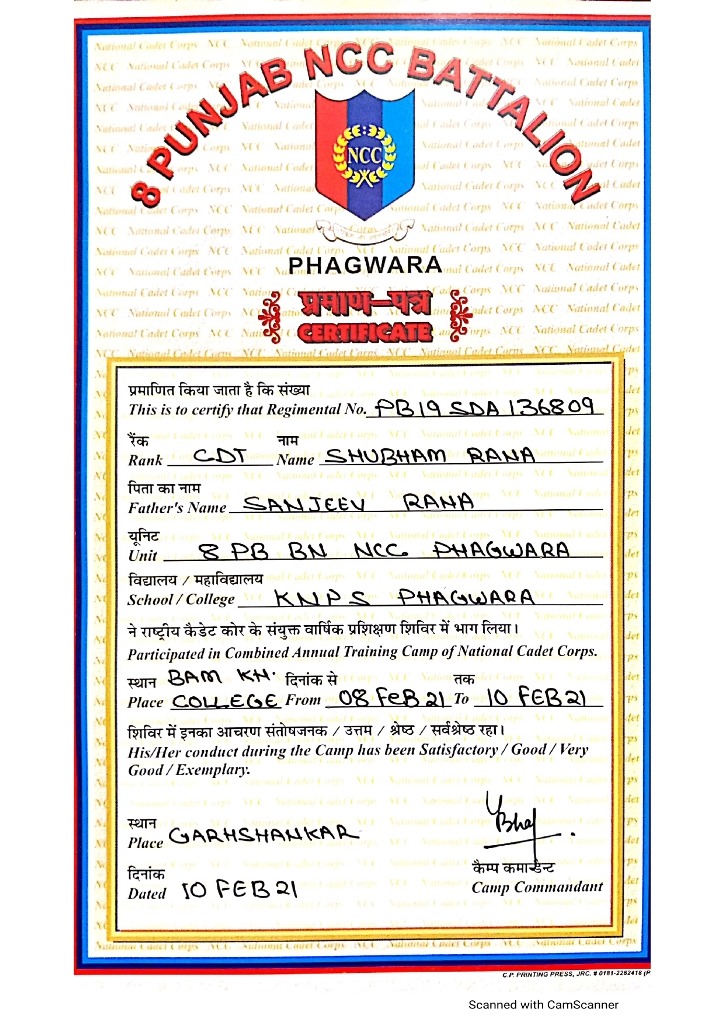 8 PUNJAB NCC BATTALION
NCC
PHAGWARA
प्रमाण–पत्र
CERTIFICATE
प्रमाणित किया जाता है कि संख्या
This is to certify that Regimental No. PB19 SDA 136809
रैंक नाम
Rank CDT Name SHUBHAM RANA
पिता का नाम
Father's Name SANJEEV RANA
यूनिट
Unit 8 PB BN NCC PHAGWARA
विद्यालय / महाविद्यालय
School / College KNPS PHAGWARA
ने राष्ट्रीय कैडेट कोर के संयुक्त वार्षिक प्रशिक्षण शिविर में भाग लिया।
Participated in Combined Annual Training Camp of National Cadet Corps.
स्थान BAM KH. दिनांक से तक
Place COLLEGE From 08 FEB 21 To 10 FEB 21
शिविर में इनका आचरण संतोषजनक / उत्तम / श्रेष्ठ / सर्वश्रेष्ठ रहा।
His/Her conduct during the Camp has been Satisfactory / Good / Very
Good / Exemplary.
स्थान
Place GARHSHANKAR
दिनांक
Dated 10 FEB 21
कैम्प कमान्डेन्ट
Camp Commandant
C.P. PRINTING PRESS, JRC. # 0181-2262418 (P
Scanned with CamScanner